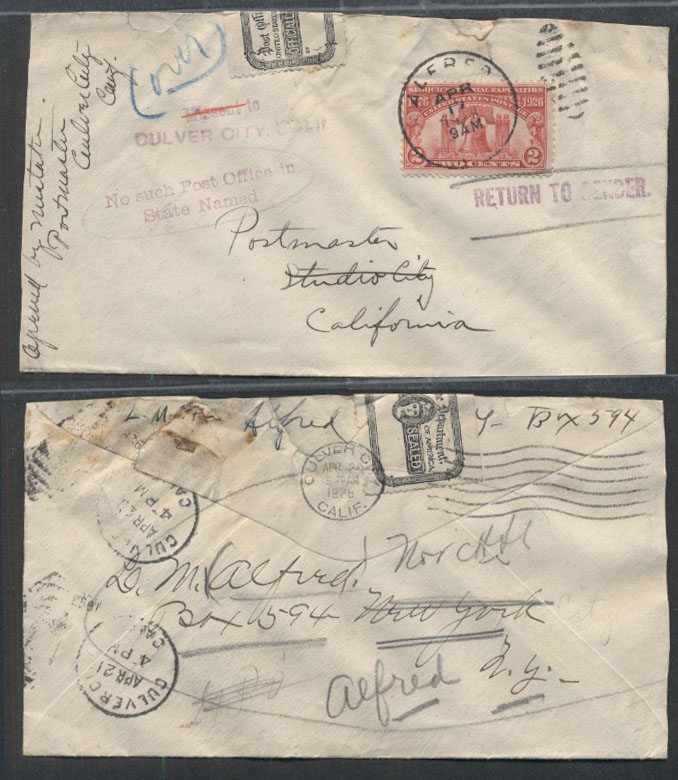 Opened by mistake.
Postmaster
Culver City
(over)
Post Office
UNITED STATES
OFFICIAL
Missent to
CULVER CITY, CALIF
No such Post Office in
State Named
ALFRED
APR
17
9AM
SESQUICENTENNIAL EXPOSITION
1776 1926
UNITED STATES POSTAGE
2 TWO CENTS 2
RETURN TO SENDER.
Postmaster
Studio City
California
Alfred
Y- Box 594
Department
OF AMERICA
SEALED
CULVER CITY
APR 24
1926
CALIF.
CULVER
APR 20
4 PM
CAL
L. M. Alfred.
Box 594 New York
CULVER CITY
APR 21
4 PM
CAL
Alfred N.Y.